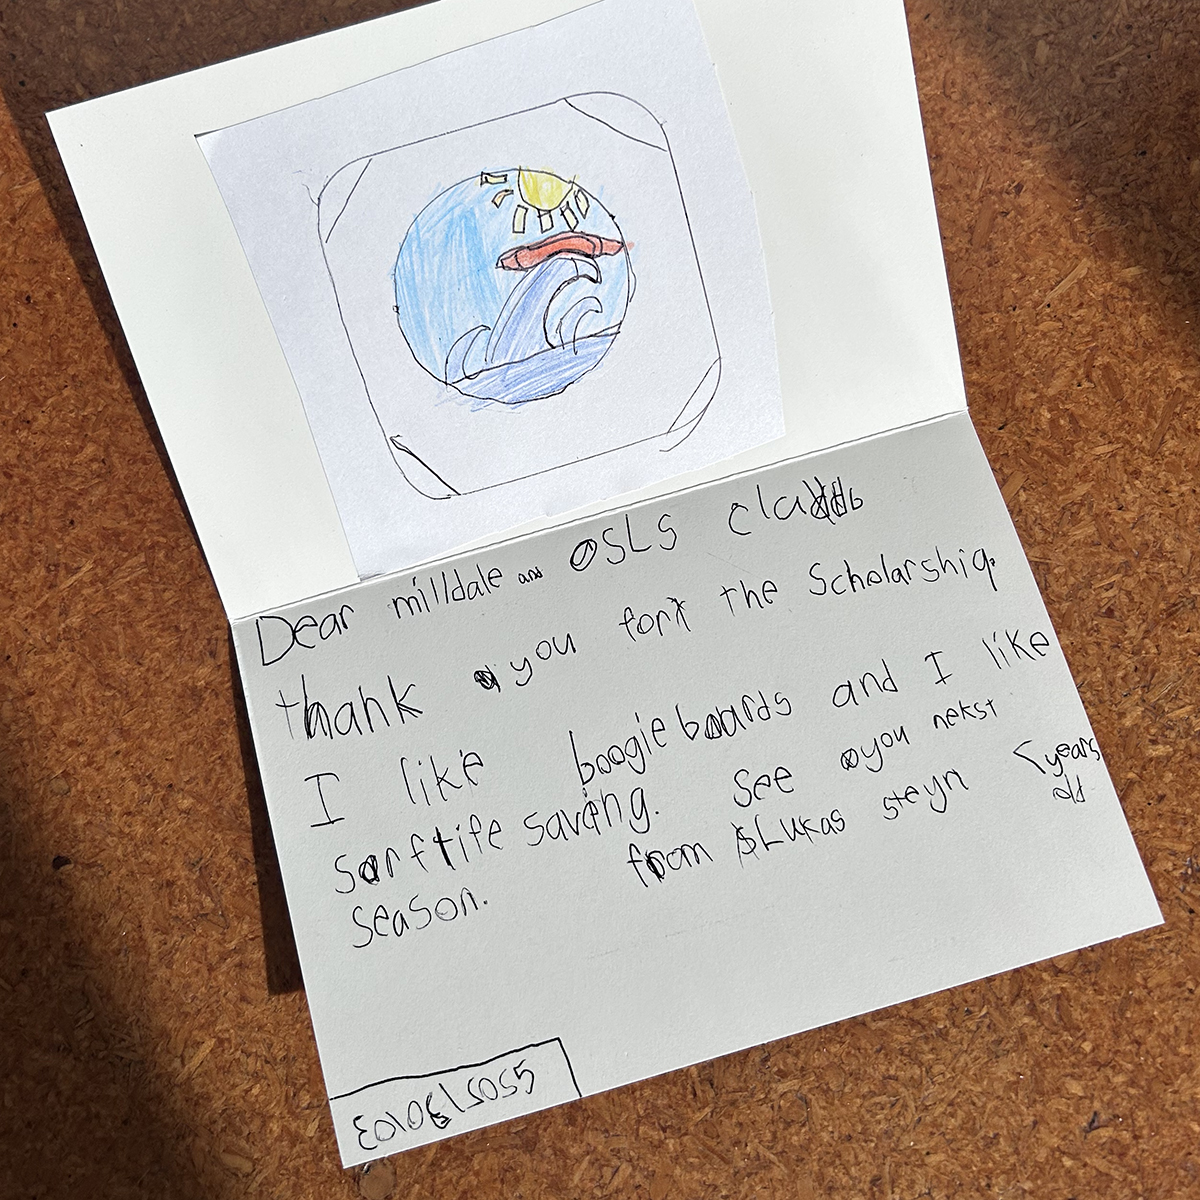 Dear milldale and OSLS club
thank you for the Scholarship.
I like boogieboards and I like
surf life saving. See you nekst
season. from Lukas steyn 7 years
old